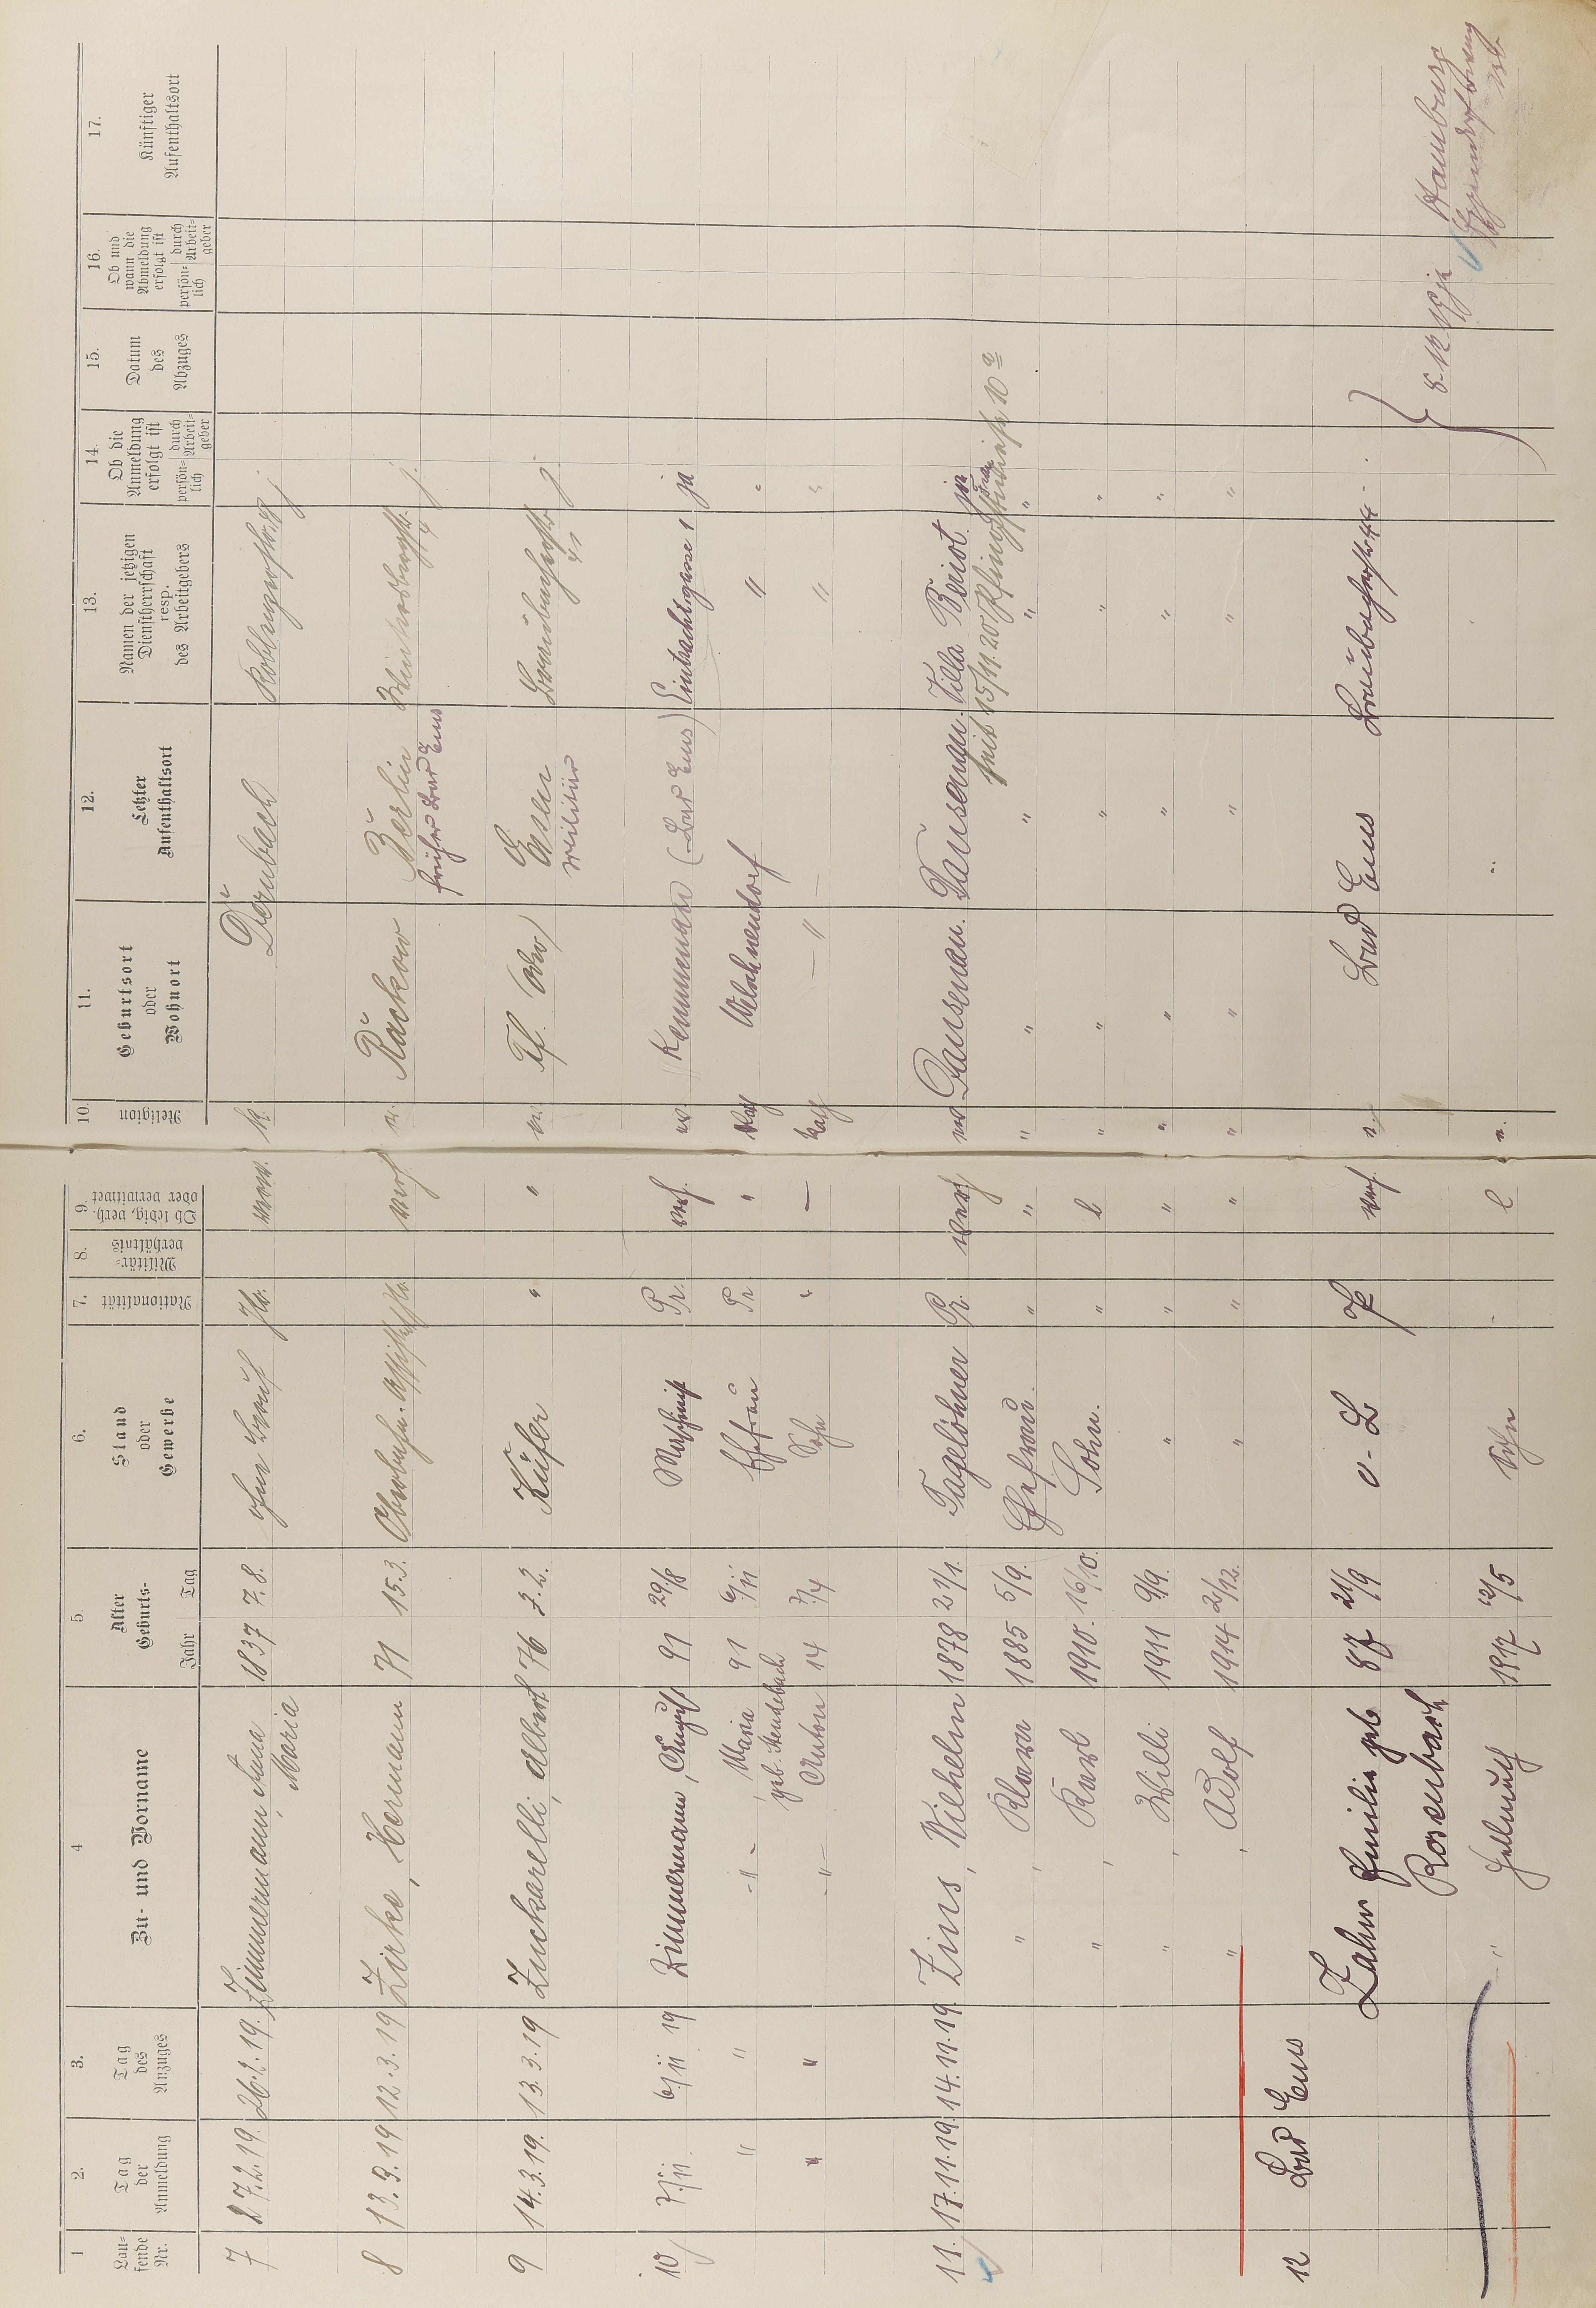 1 Lau- fende Nr.
2. Tag der Anmeldung
3. Tag des Anzuges
4 Zu- und Vorname
5. Alter Geburts- Jahr Tag
6. Stand oder Gewerbe
7. Nationalität
8. Militär- verhältnis
9. Ob ledig, verh. oder verwitwet
10. Religion
11. Geburtsort oder Wohnort
12. Letzter Aufenthaltsort
13. Namen der jetzigen Dienstherrschaft resp. des Arbeitgebers
14. Ob die Anmeldung erfolgt ist persön- lich durch Arbeit- geber
15. Datum des Abzuges
16. Ob und wann die Abmeldung erfolgt ist persön- lich durch Arbeit- geber
17. Künftiger Aufenthaltsort
7 27.2.19. 26.2.19. Zimmermann, Anna 1837 7.8. ohne Beruf Pr. verw. k. Dernbach Koblenzerstr. j
Maria
8 13.3.19 12.3.19 Zirke, Hermann 71 15.3. verh. ev. Rackow Berlin j.
früher Bad Ems
9 14.3.19. 13.3.19 Zuckarelli, Albert 76 3.2. Küfer " " ev. Essen Braubacherstr. j.
Militär
10 7/11. 6/11 19 Zimmermann, August 91 29/8 Maschinist Pr. verh. ev. Kemmenau (Bad Ems) Eintrachtgasse 1 ja
" " -"- , Maria 91 6/11 Ehefrau Pr " Kath Welschneudorf " "
geb. Hendebach
" " -"- Anton 14 7/4 Sohn " — Kath — " — " "
11. 17.11.19. 14.11.19. Zins, Wilhelm 1878 21/1. Tagelöhner Pr. verh ev Dausenau. Dausenau. Villa Beriot. ja
seit 15/11.20 Pfingstwiese 10a
" , Klara 1885 5/9. Ehefrau. " " " " " " "
" , Karl 1910. 16/10. Sohn. " l. " " " " "
" , Willi 1911 9/9. " " " " " " " "
" , Adolf 1914 2/12. " " " " " " " "
12 Bad Ems
Zahn Emilie geb. 87 21/9 o. B Pr verh. e. Bad Ems Braubacherstr. 44
Rosenbach
8.12.19 ja Hamburg
" Hellmuth 1917 12/5 Sohn l e. "